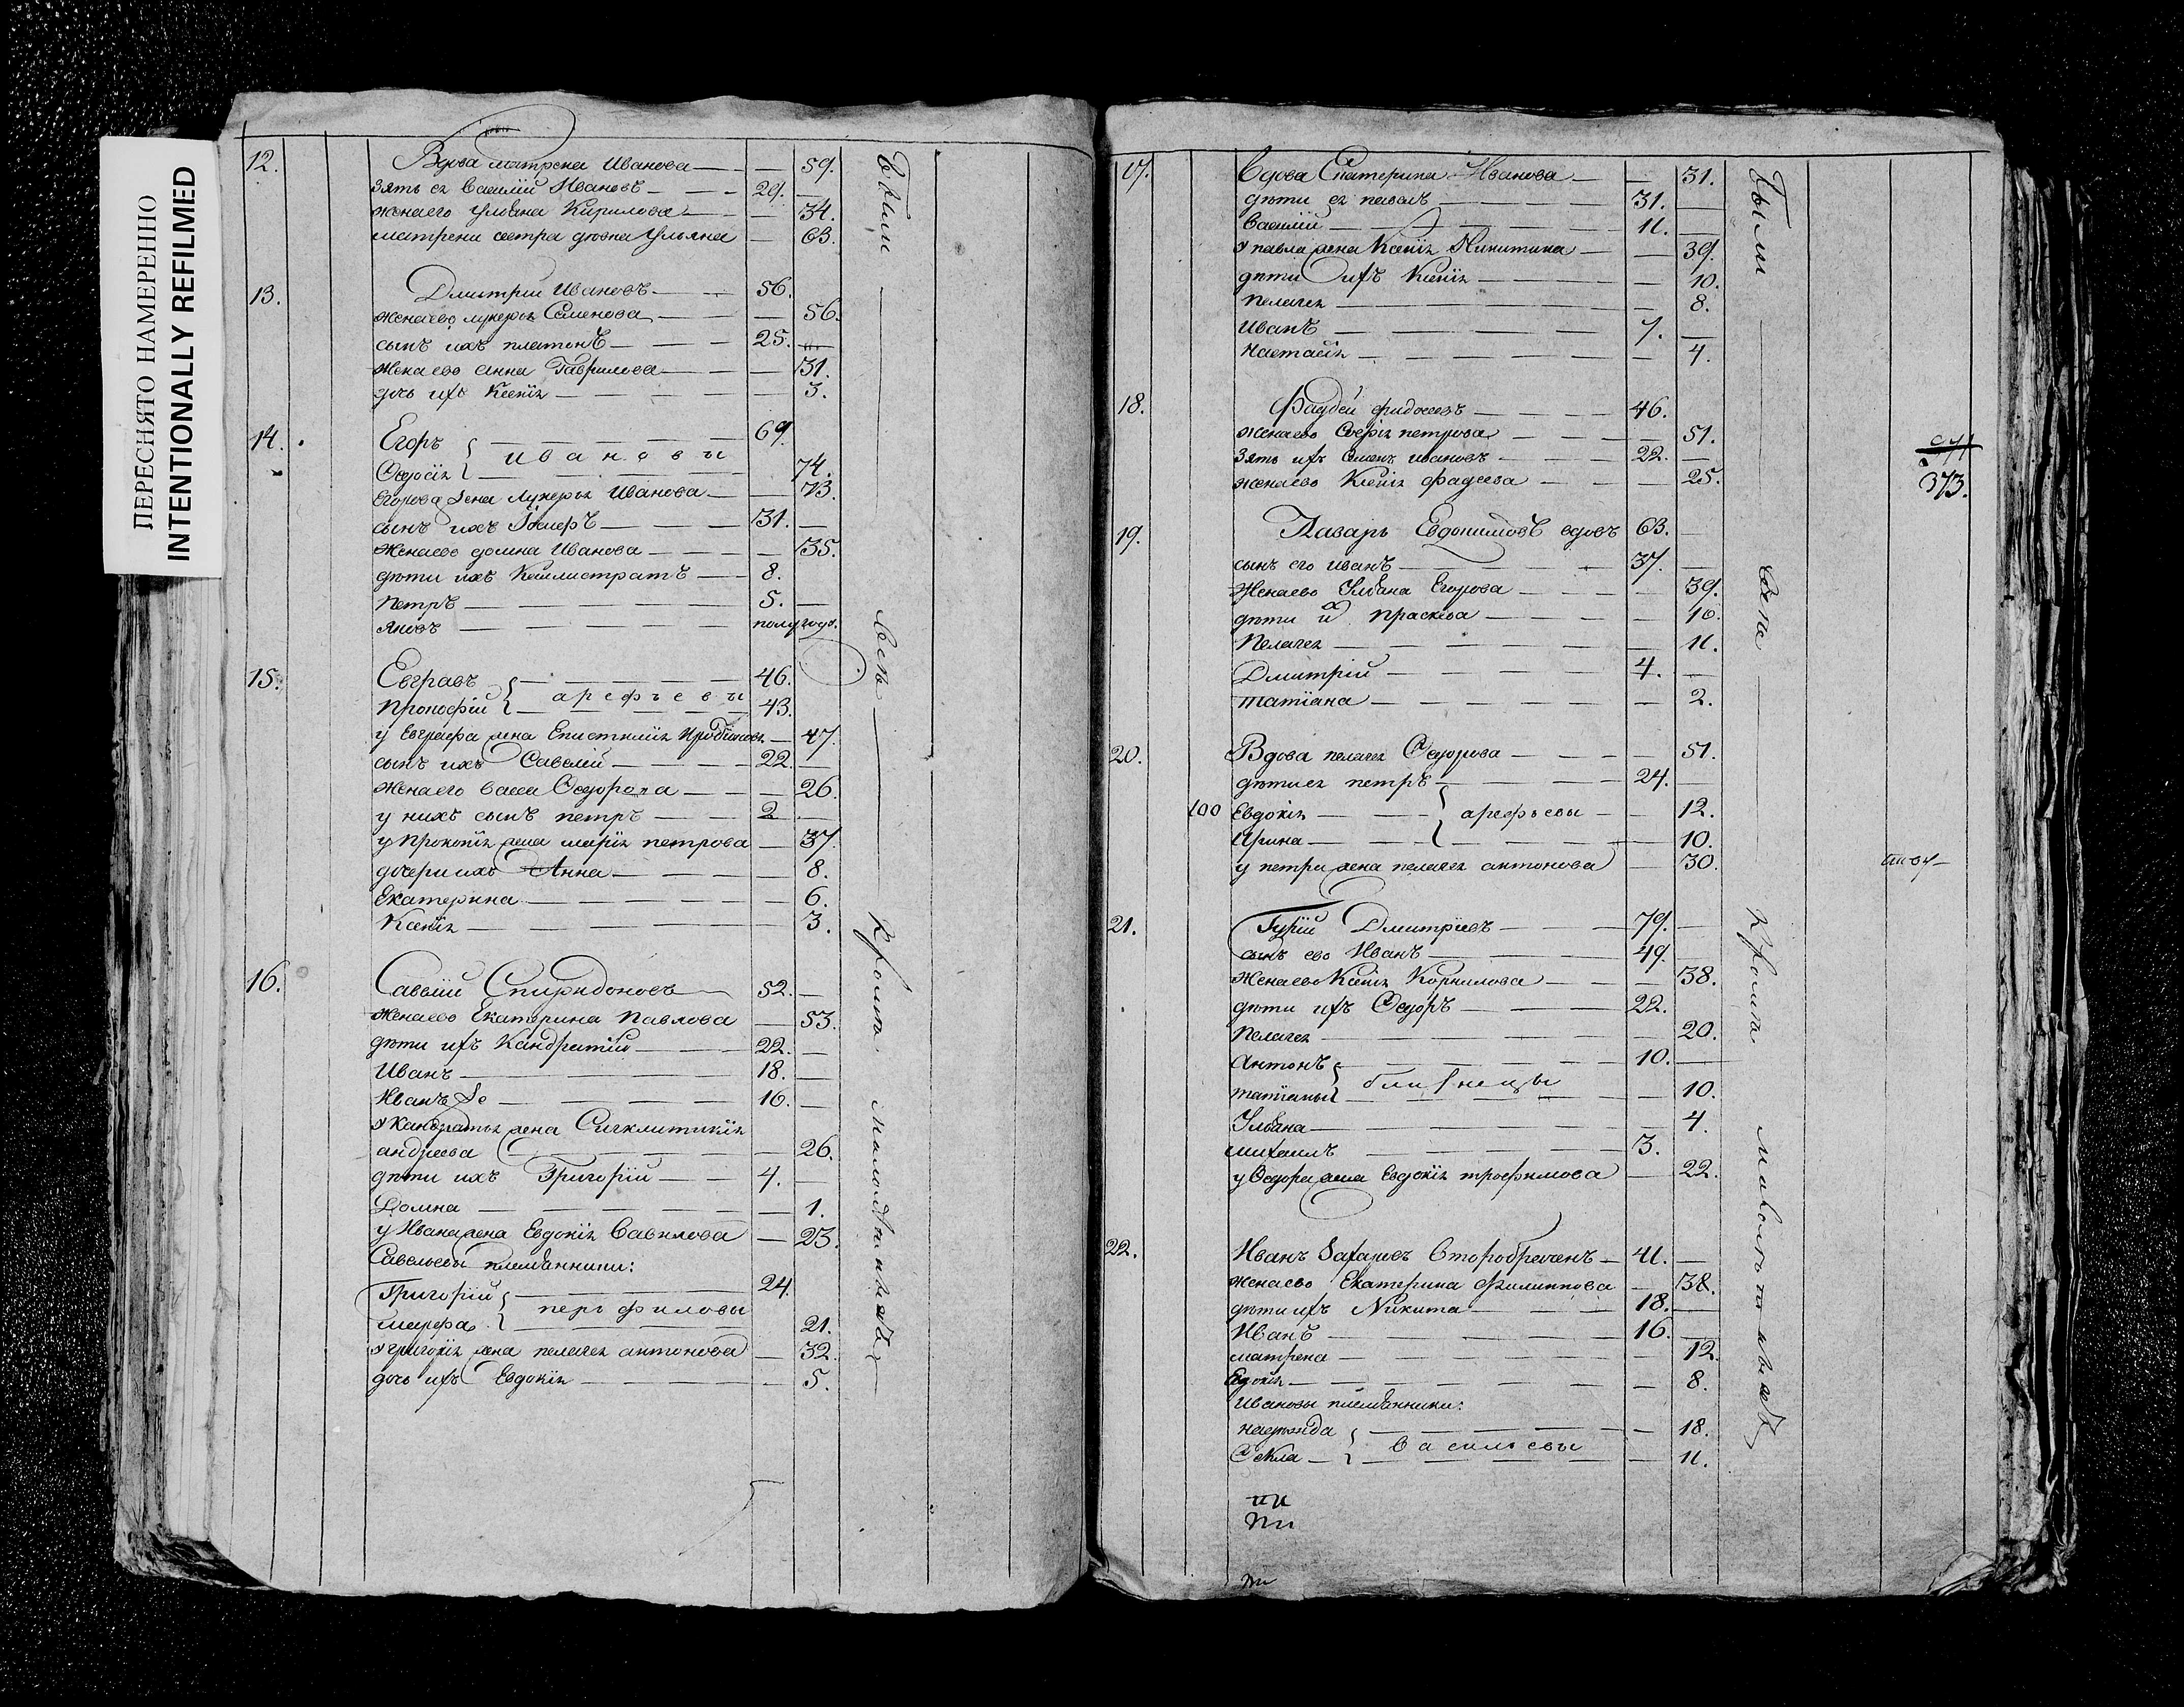 ПЕРЕСНЯТО НАМЕРЕННО
INTENTIONALLY REFILMED
12. Вдова матрена Иванова — — 59.
зять ея Василїй Ивановъ — 29. —
жена его Ульяна Кирилова — — 34.
матрени сестра девка Ульяна — 63.
13. Дмитрїи Ивановъ — 56.
жена ево лукерья Семенова — — 56.
сынъ ихъ платонъ — 25. —
Жена ево анна Гаврилова — — 31.
дочь ихъ Ксенїя — — 3.
14. Егоръ — 69.
ивановы
Ѳедосїя — 74.
Егорова жена Лукерья Иванова — — 73.
сынъ ихъ — 31. —
Жена ево домна Иванова — — 35.
дѣти ихъ Каллистратъ — 8.
Петръ — 5. —
Яковъ — полугода.
15. Евграфъ — 46.
арефьевы
Прокофїй — 43.
у Евграфа жена Епистимїя — 47.
сынъ ихъ Савелїй — 22. —
Жена его васса Ѳедорова — — 26.
у нихъ сынъ петръ — 2 —
у Прокопїя жена марїя петрова — 37.
дочери ихъ Анна — — 8.
Екатерина — — 6.
Ксенїя — — 3.
16. Савелїй Спиридоновъ — 52. —
Жена ево Екатерина Павлова — 53.
дѣти ихъ Кандратїй — 22. —
Иванъ — 18. —
Иванъ же — 16. —
у Кандратья жена Сигклитикїя
андреева — — 26.
дѣти ихъ Григорїй — 4.
Домна — — 1.
у Ивана жена Евдокїя Гаврилова — 23.
Савельевы племянники:
Григорїй — 24.
перьфиловы
марфа — 21.
у григорїя жена пелагея антонова — 32.
дочь ихъ Евдокїя — — 5.
Были — все кроме малолѣтныхъ
17. Вдова Екатерина Иванова — — 31.
дѣти ея павелъ — 31. —
Василїй — 11. —
у павла жена Ксенїя Никитина — — 39.
дѣти ихъ Ксенїя — — 10.
Пелагея — — 8.
Иванъ — 7. —
Настасїя — — 4.
18. Фадѣй фидосеевъ — 46.
Жена ево Софїя петрова — — 51.
Зять ихъ Семенъ ивановъ — 22. —
жена ево Ксенїя фадеева — — 25.
373.
19. Лазарь Евдокимовъ вдовъ 63. —
сынъ его иванъ — 37. —
Жена ево Ульяна Егорова — — 39.
дѣти их Прасковья — — 16.
Пелагея — — 11.
Дмитрїй — 4. —
татїана — — 2.
20. Вдова пелагея Ѳедорова — — 51.
дѣти ея петръ — 24. —
100 Евдокїя — арефьевы — — 12.
Ирина — — 10.
у петра жена пелагея антонова — 30.
21. Гурїй Дмитрїевъ — 79. —
сынъ ево Иванъ — 49. —
Жена ево Ксенїя Корнилова — — 38.
дѣти ихъ Ѳедоръ — 22.
Пелагея — — 20.
Антонъ — 10. —
близнецы
татїаны — — 10.
Ульяна — — 4.
михаилъ — 3.
у Ѳедора жена Евдокїя трофимова — 22.
22. Иванъ Захаровъ Второбраченъ — 41. —
жена ево Екатерина Филиппова — 38.
дѣти ихъ Никита — 18. —
Иванъ — 16. —
матрена — — 12.
Евдокїя — — 8.
Ивановы племянники:
надежда — — 18.
васильевы
Ѳекла — — 11.
Были все кроме малолѣтныхъ